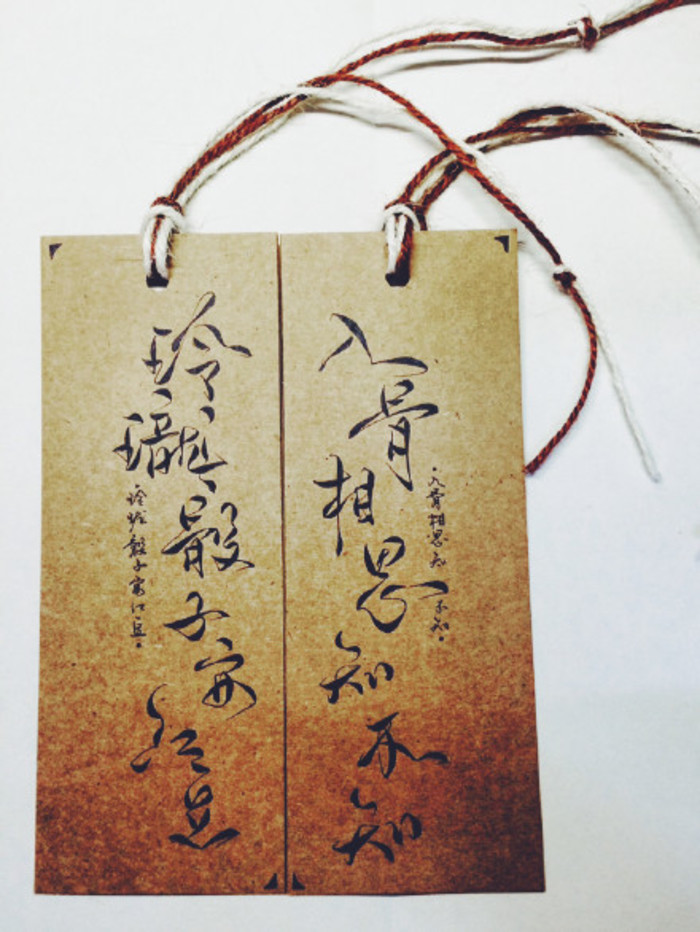 玲瓏骰子安红豆
玲珑骰子安红豆
入骨相思知不知
入骨相思知不知